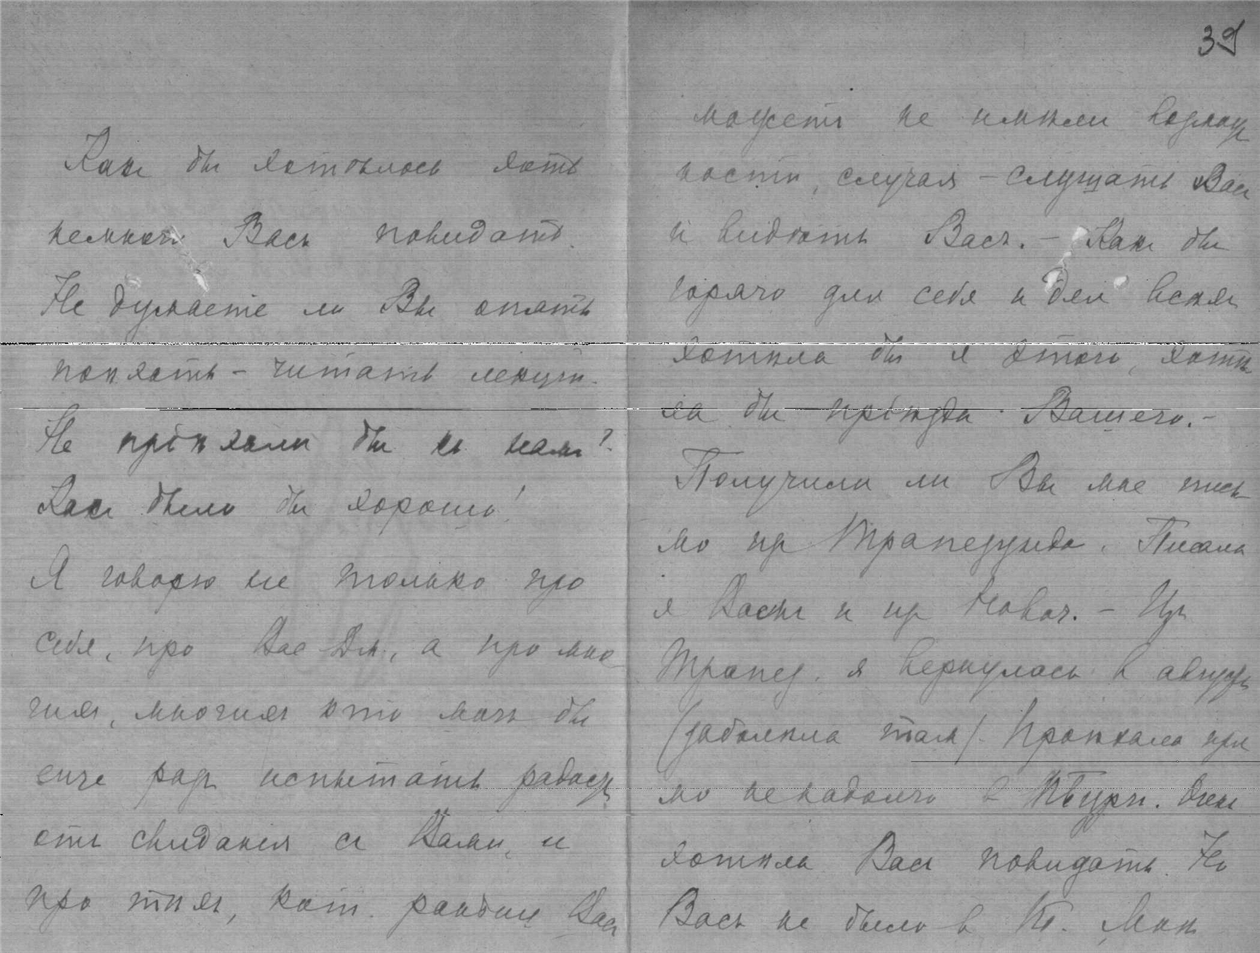 Какъ бы хотѣлось хоть
немного Васъ повидать.
Не думаете ли Вы опять
поѣхать – читать лекціи.
Не пріѣхали бы къ намъ?
Какъ было бы хорошо!
Я говорю не только про
себя, про Вас. Дм., а про мно
гихъ, многихъ кто могъ бы
еще разъ испытать радость
отъ свиданія съ Вами, и
про тѣхъ, кот. раньше Васъ
39
можетъ не имѣли возмож
ности, случая – слушать Васъ
и видѣть Васъ. – Какъ бы
горячо для себя и для всѣхъ
хотѣла бы я этого, хотѣ
ла бы пріѣзда Вашего. –
Получили ли Вы мое пись
мо из Трапезунда. Писала
я Вамъ и из Новоч. – Из
Трапез. я вернулась в августѣ
(заболѣла тамъ). Проѣхала пря
мо ненадолго в Птбург. Очень
хотѣла Васъ повидать. Но
Васъ не было в Пт. Мнѣ